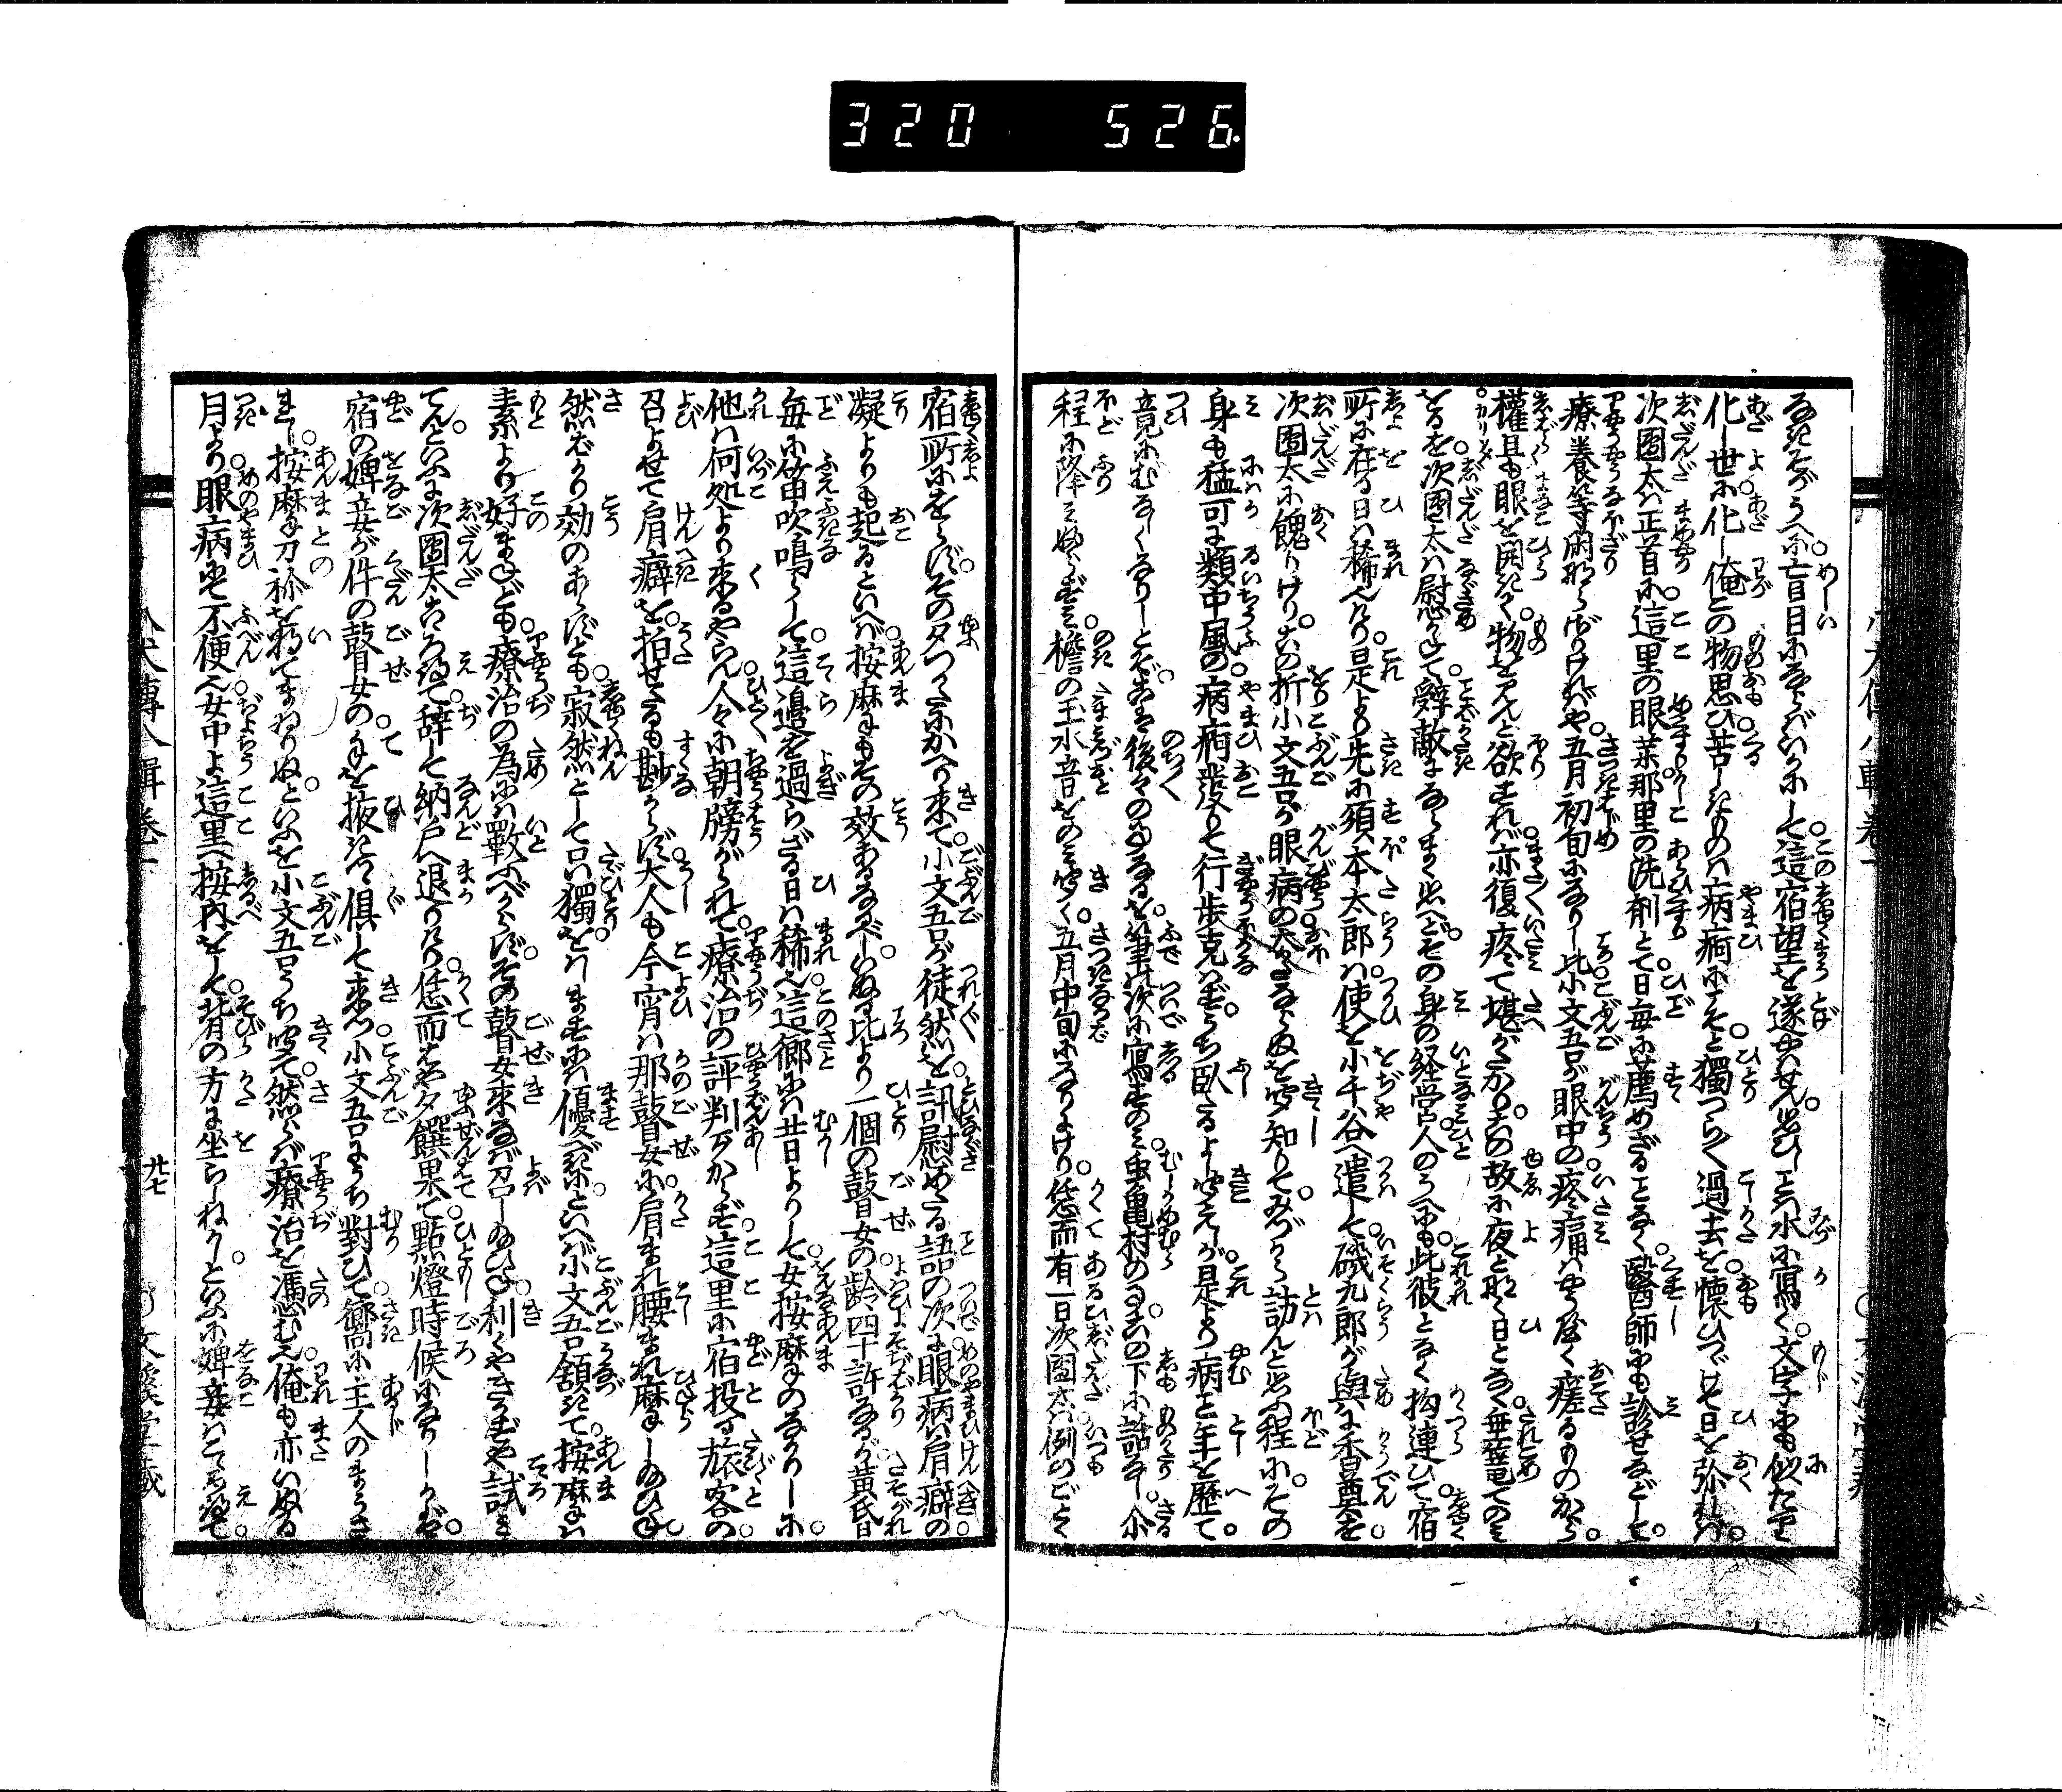 320 526
化し世に化し俺この物思ひ苦しきものは病痾にこそと獨つらく過去を懐ひつゞけて日を弥れば
次團太は正首に這里の眼薬那里の洗剤とて日毎に薦めざることなく醫師にも診せなどして
療養等閑ならざりければや五月初旬になりし比小文吾が眼中の疼痛はやうやく瘥るものから
權且も眼を開きて物を見んと欲すれば亦復疼て堪がたかりその故に夜となく日となく垂籠てのみ
をるを次團太は慰めかねて舜敵にならまく思へどその身の経営人のうへにも此彼となく拘連ひて宿
所に在る日は稀なり是より先に須本太郎は使を小千谷へ遣して磯九郎が與に香奠を
次團太に餽りけりその折小文吾が眼病の大かたならぬを聞知りてみづから訪んと思ふ程にその
身も猛可に類中風の病痾發りて行歩克はずうち臥たるよし聞えしが是より病こと年を歴て
竟にむなしくなりしとぞこは後々の話なるを筆の次に寫すのみ虫亀村のることの下に話なし尒
程に降みふらずみ檐の玉水音をのみ聞く五月中旬になりにけり恁而有一日次團太は例のごとく
宿所にをらずその夕つかたかへり来て小文吾が徒然を訊慰めたる語の次に眼病は肩癖の
凝よりも起るといへば按摩もその效あるなるべしいぬる比より一個の瞽女の齢四十許なるが黄昏
毎に笛吹鳴らして這邊を過らざる日は稀也這郷には昔日よりして女按摩のなかりしに
他は何処より来るやらん人々に朝膀がられて療治の評判わろからず這里に宿投る旅客の
召よせて肩癖を拍せたるも尠からず大人も今宵は那瞽女に肩まれ腰まれ摩らし給ひね
然ばかり効のあらずとも寂然として只獨をはしまさんには優べきにといへば小文吾頷きて按摩は
素より好まねども療治の為には嫌ふべからずその瞽女来なば召し給ひね利くやきかずや試み
てんといふに次團太こゝろ得て辞して納戸へ退りけり恁而はや夕饌果て點燈時候になりしかば
宿の婢妾が件の瞽女の手を掖きつゝ倶して来つ小文吾にうち對ひて嚮に主人のまうさ
れし按摩刀祢を將てまゐりぬといふを小文吾うち聞て然らば療治を憑む也俺も亦いぬる
月より眼病にて不便也女中よ這里へ按内をして背の方に坐らしねかしといふに婢妾はこゝろ得て
八犬傳八輯巻一
廿七
文溪堂藏